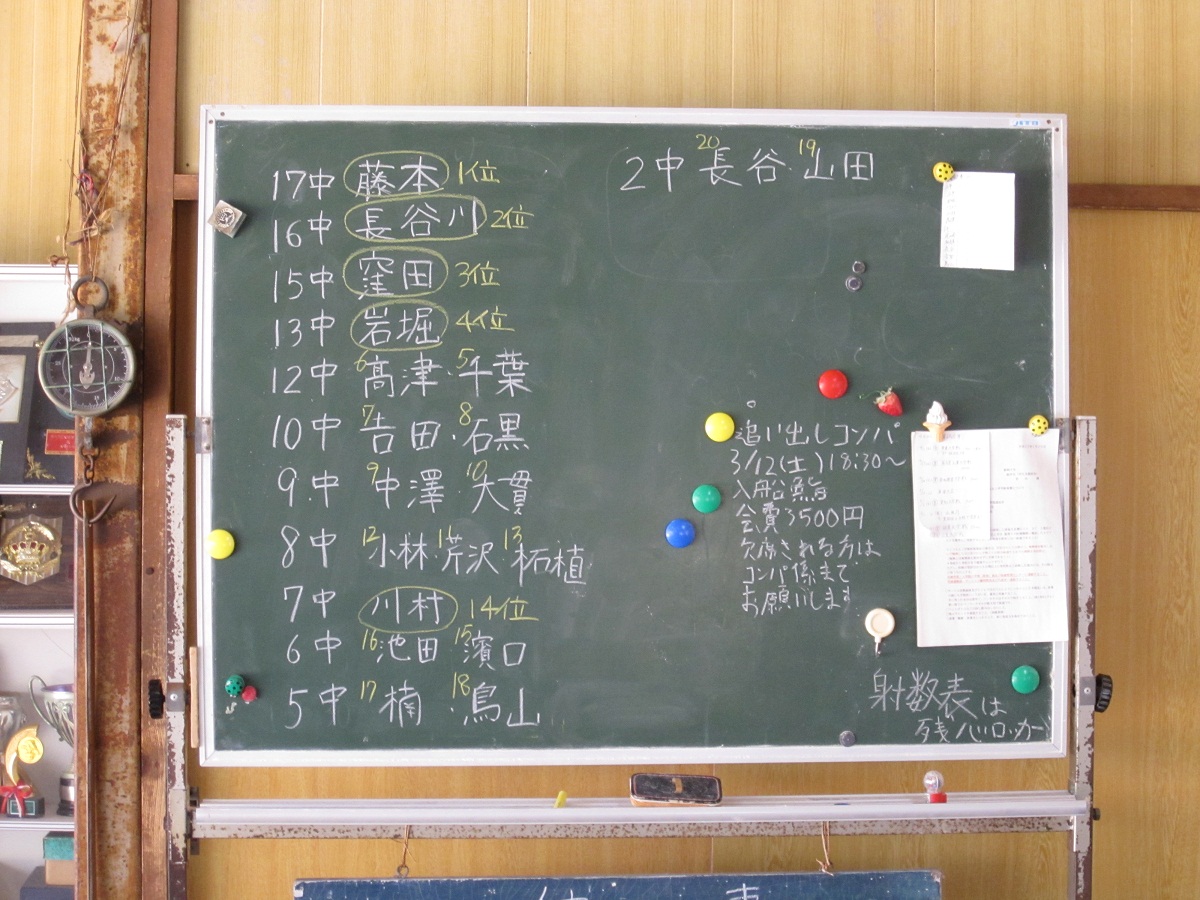 17中 藤本 1位
16中 長谷川 2位
15中 窪田 3位
13中 岩堀 4位
12中 6髙津・5千葉
10中 7吉田・8石黒
9中 9中澤・10大貫
8中 12小林・11芹沢・13柘植
7中 川村 14位
6中 16池田・15濱口
5中 17楠・18鳥山
2中 20長谷・19山田
追い出しコンパ
3/12(土)18:30〜
入船鮨
会費3500円
欠席される方は
コンパ係まで
お願いします
射数表は
残心ロッカー